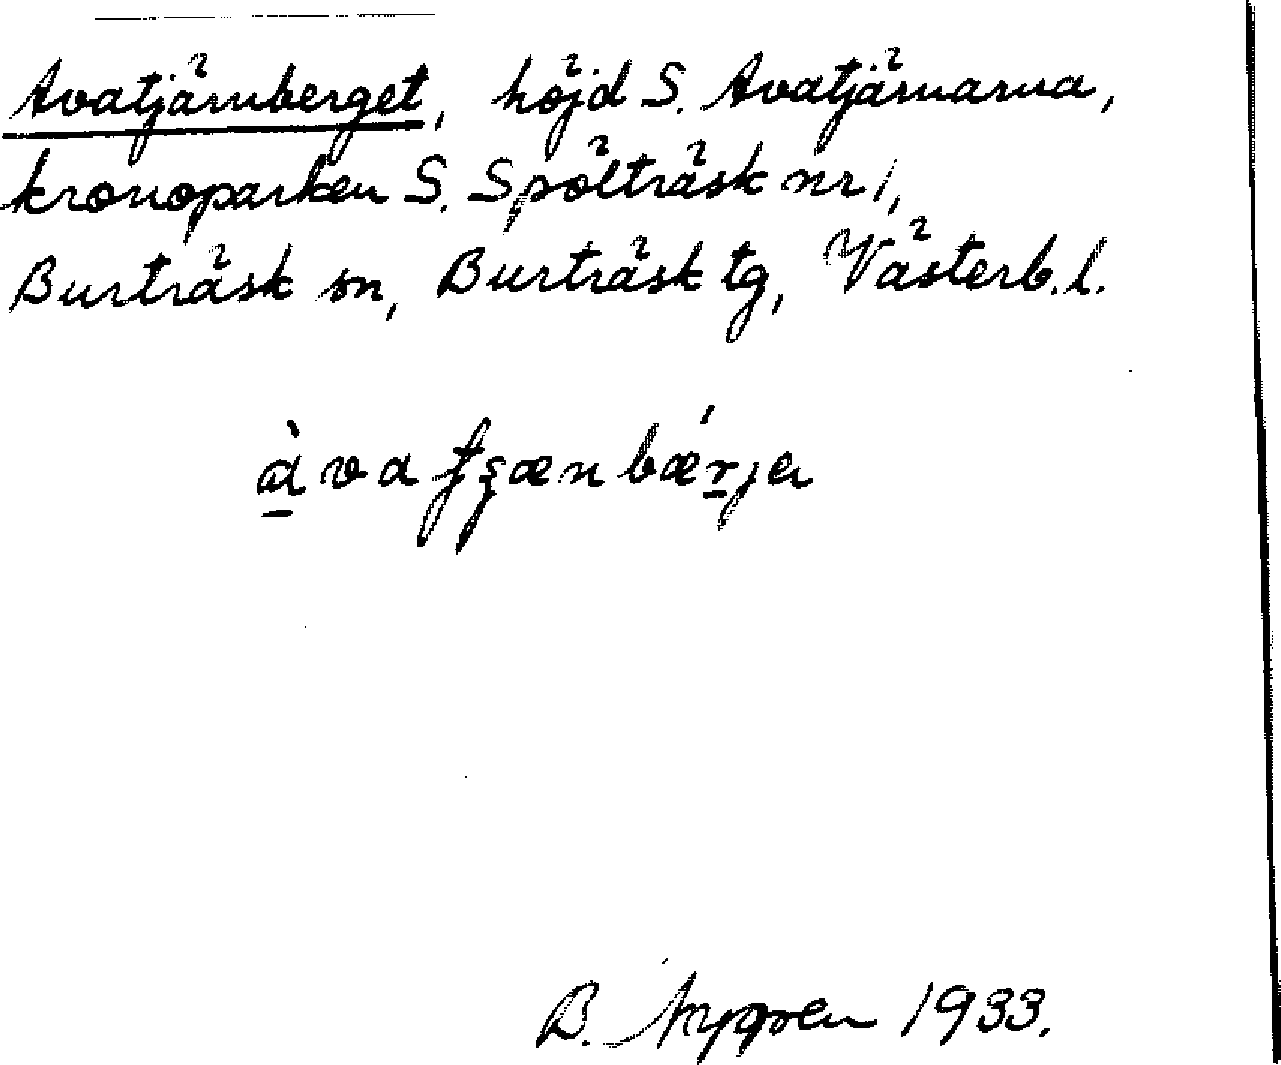 Avatjärnberget, höjd S. Avatjärnarna,
kronoparken S. Spölträsk nr 1,
Burträsk sn, Burträsk tg, Västerb.l.
àvaʄʒænbǽrja
B. 1933.